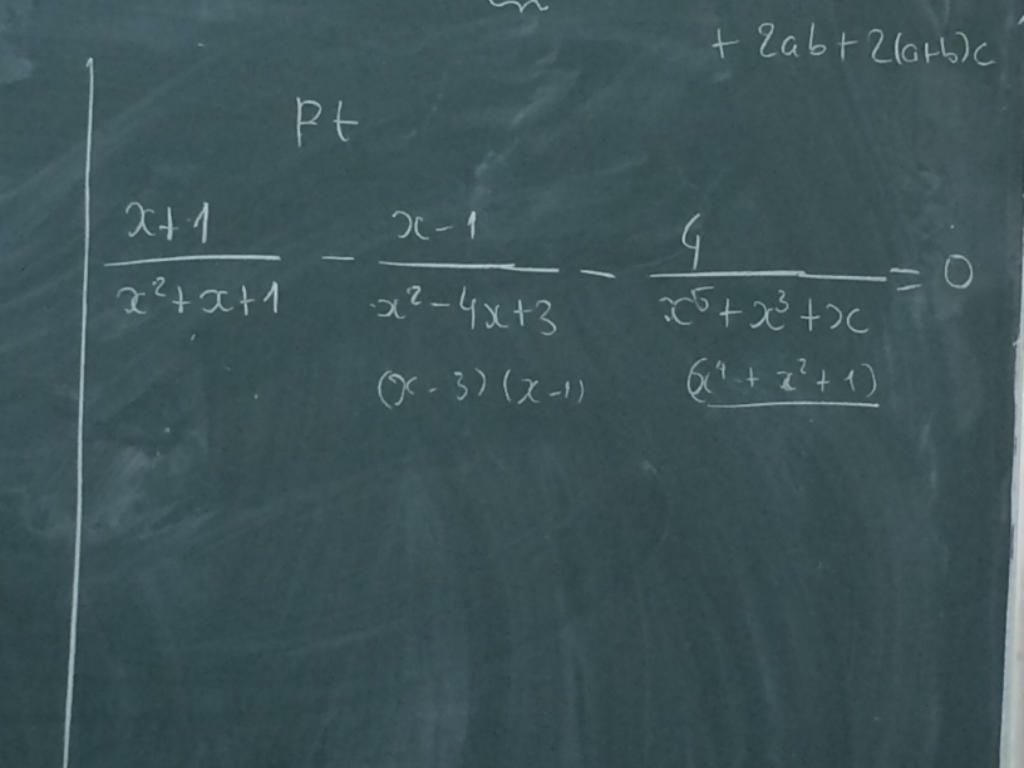 + 2ab + 2(a+b)c
Pt
x+1 / x²+x+1 - x-1 / x²-4x+3 - 4 / x⁵+x³+x = 0
(x-3)(x-1) (x⁴+x²+1)